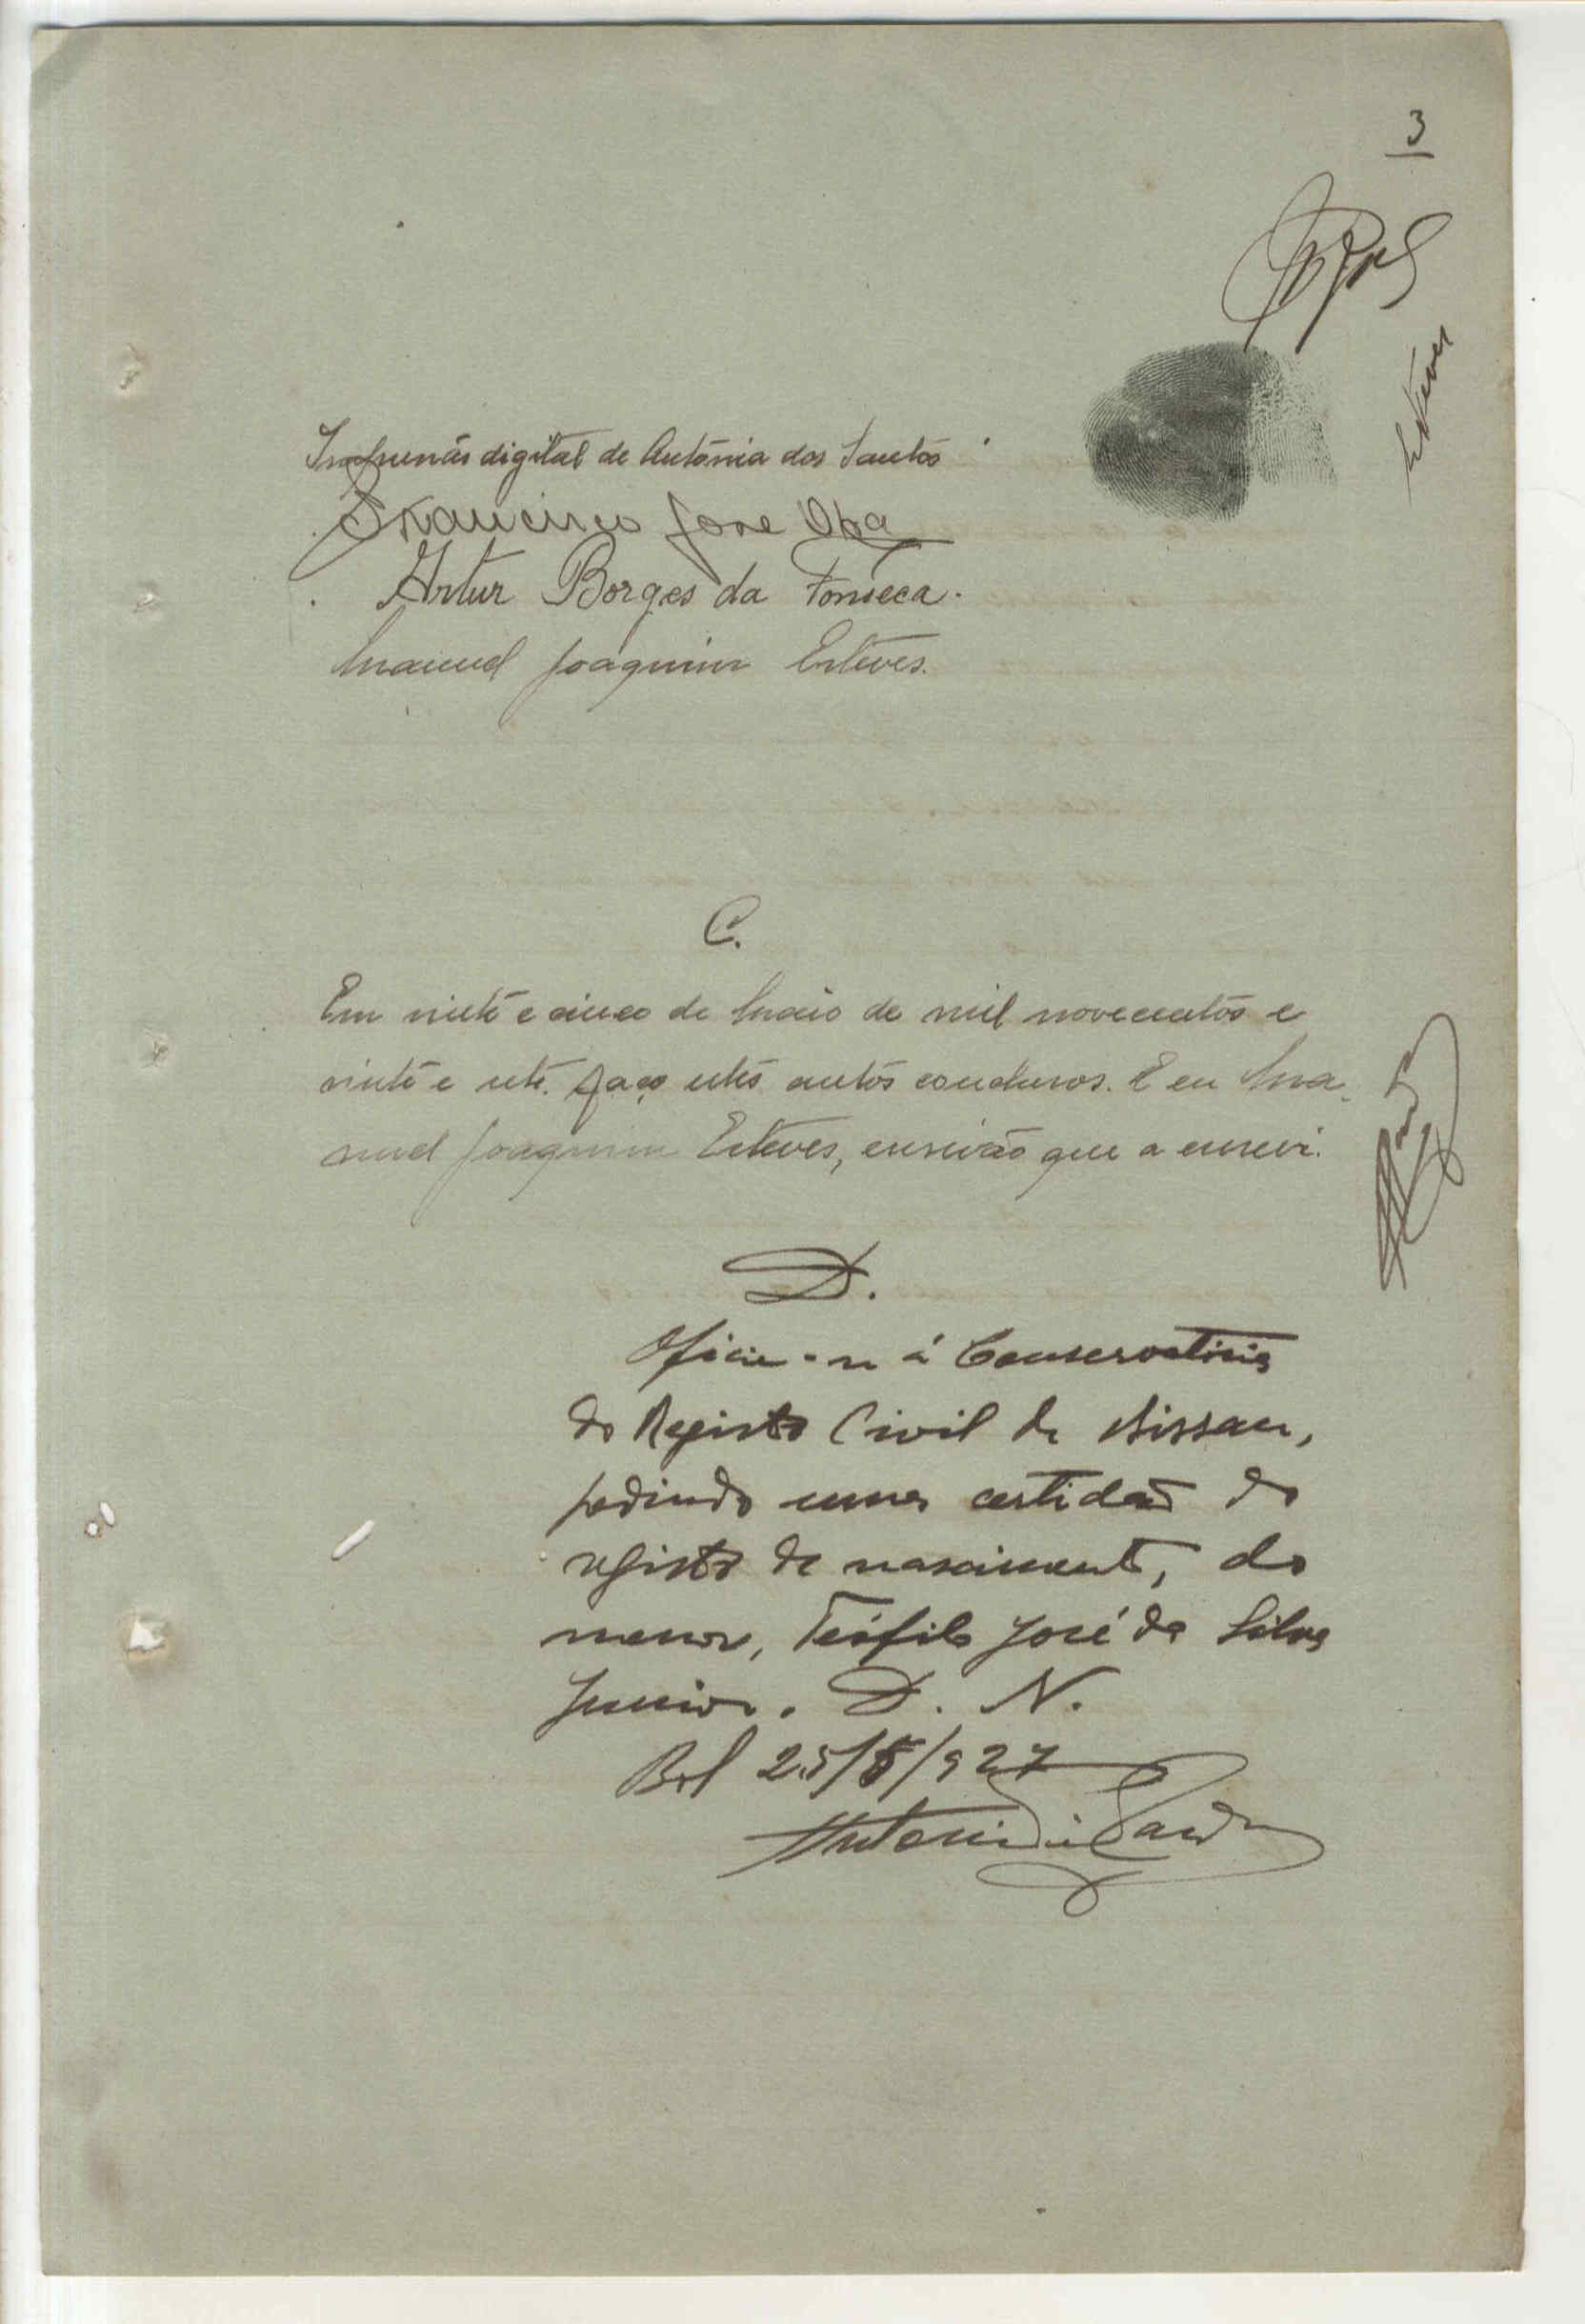 3
Esteves
Impressão digital de Antónia dos Santos
Francisco Jose
Artur Borges da Fonseca.
Manuel Joaquim Esteves.
C.
Em vinte e cinco de Maio de mil novecentos e
vinte e sete. faço estes autos conclusos. E eu Ma-
nuel Joaquim Esteves, escrivão que a escrevi.
D.
Oficie-se á Conservatoria
do Registo Civil de Bissau,
pedindo uma certidão do
registo de nascimento, do
menor, Teófilo José da Silva
Junior. D. N.
Bol 25/5/927